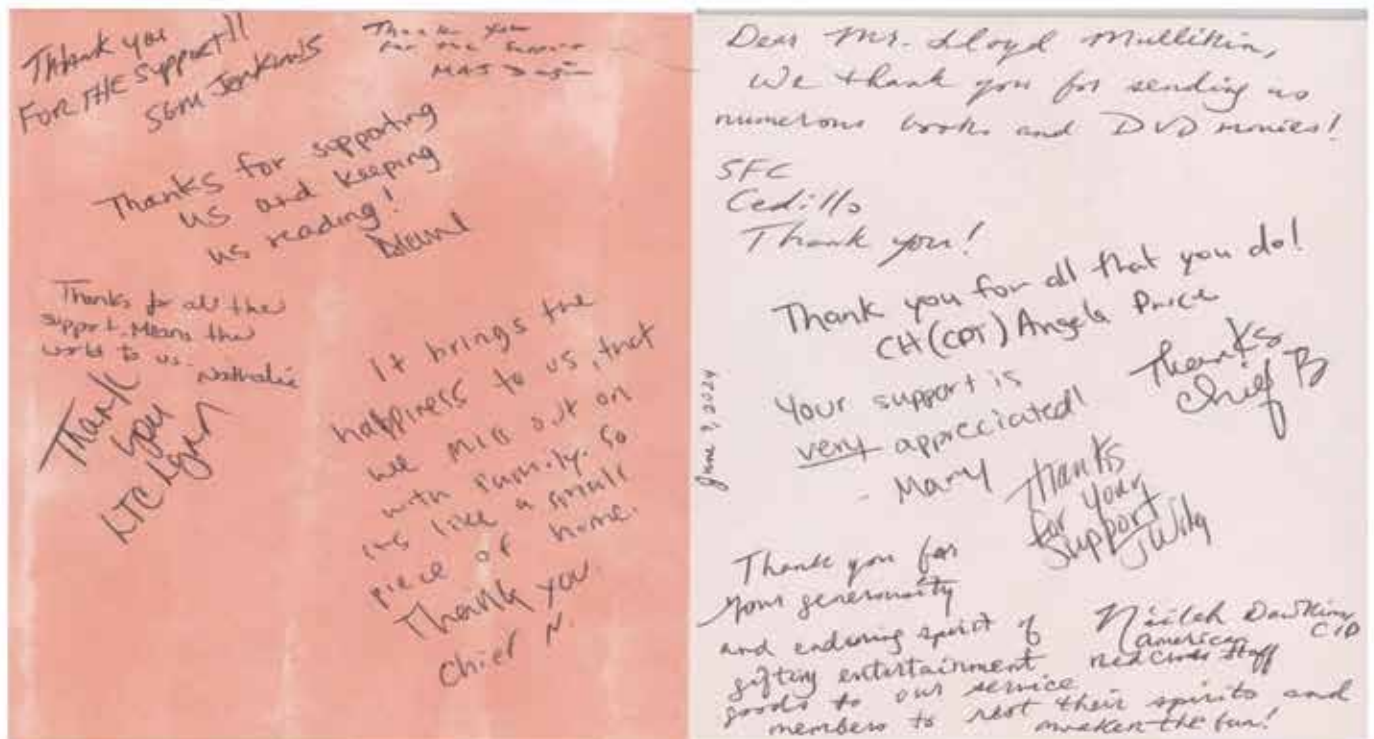 Thhank you
FOR THE Support!!
SGM Jenkins
Thank you
for the support
MAJ
Thanks for supporting
us and keeping
us reading!
Thanks for all the
support. Means the
world to us.
Nathalie
Thank
you
LTC
It brings the
happiness to us, that
we miss out on
with family. So
its like a small
piece of home.
Thank you.
Chief N.
Dear Mr. Lloyd Mullikin,
We thank you for sending us
numerous books and DVD movies!
SFC
Cedillo
Thank you!
Thank you for all that you do!
CH(CPT) Angela Price
Thanks
Chief B
June 7, 2024
Your support is
very appreciated!
- Mary
Thanks
for your
Support
Thank you for
your generousity
and enduring spirit of
gifting entertainment
goods to our service
members to rest their spirits and
awaken the fun!
Naileh Dawkins,
CID
American
Red Cross Staff